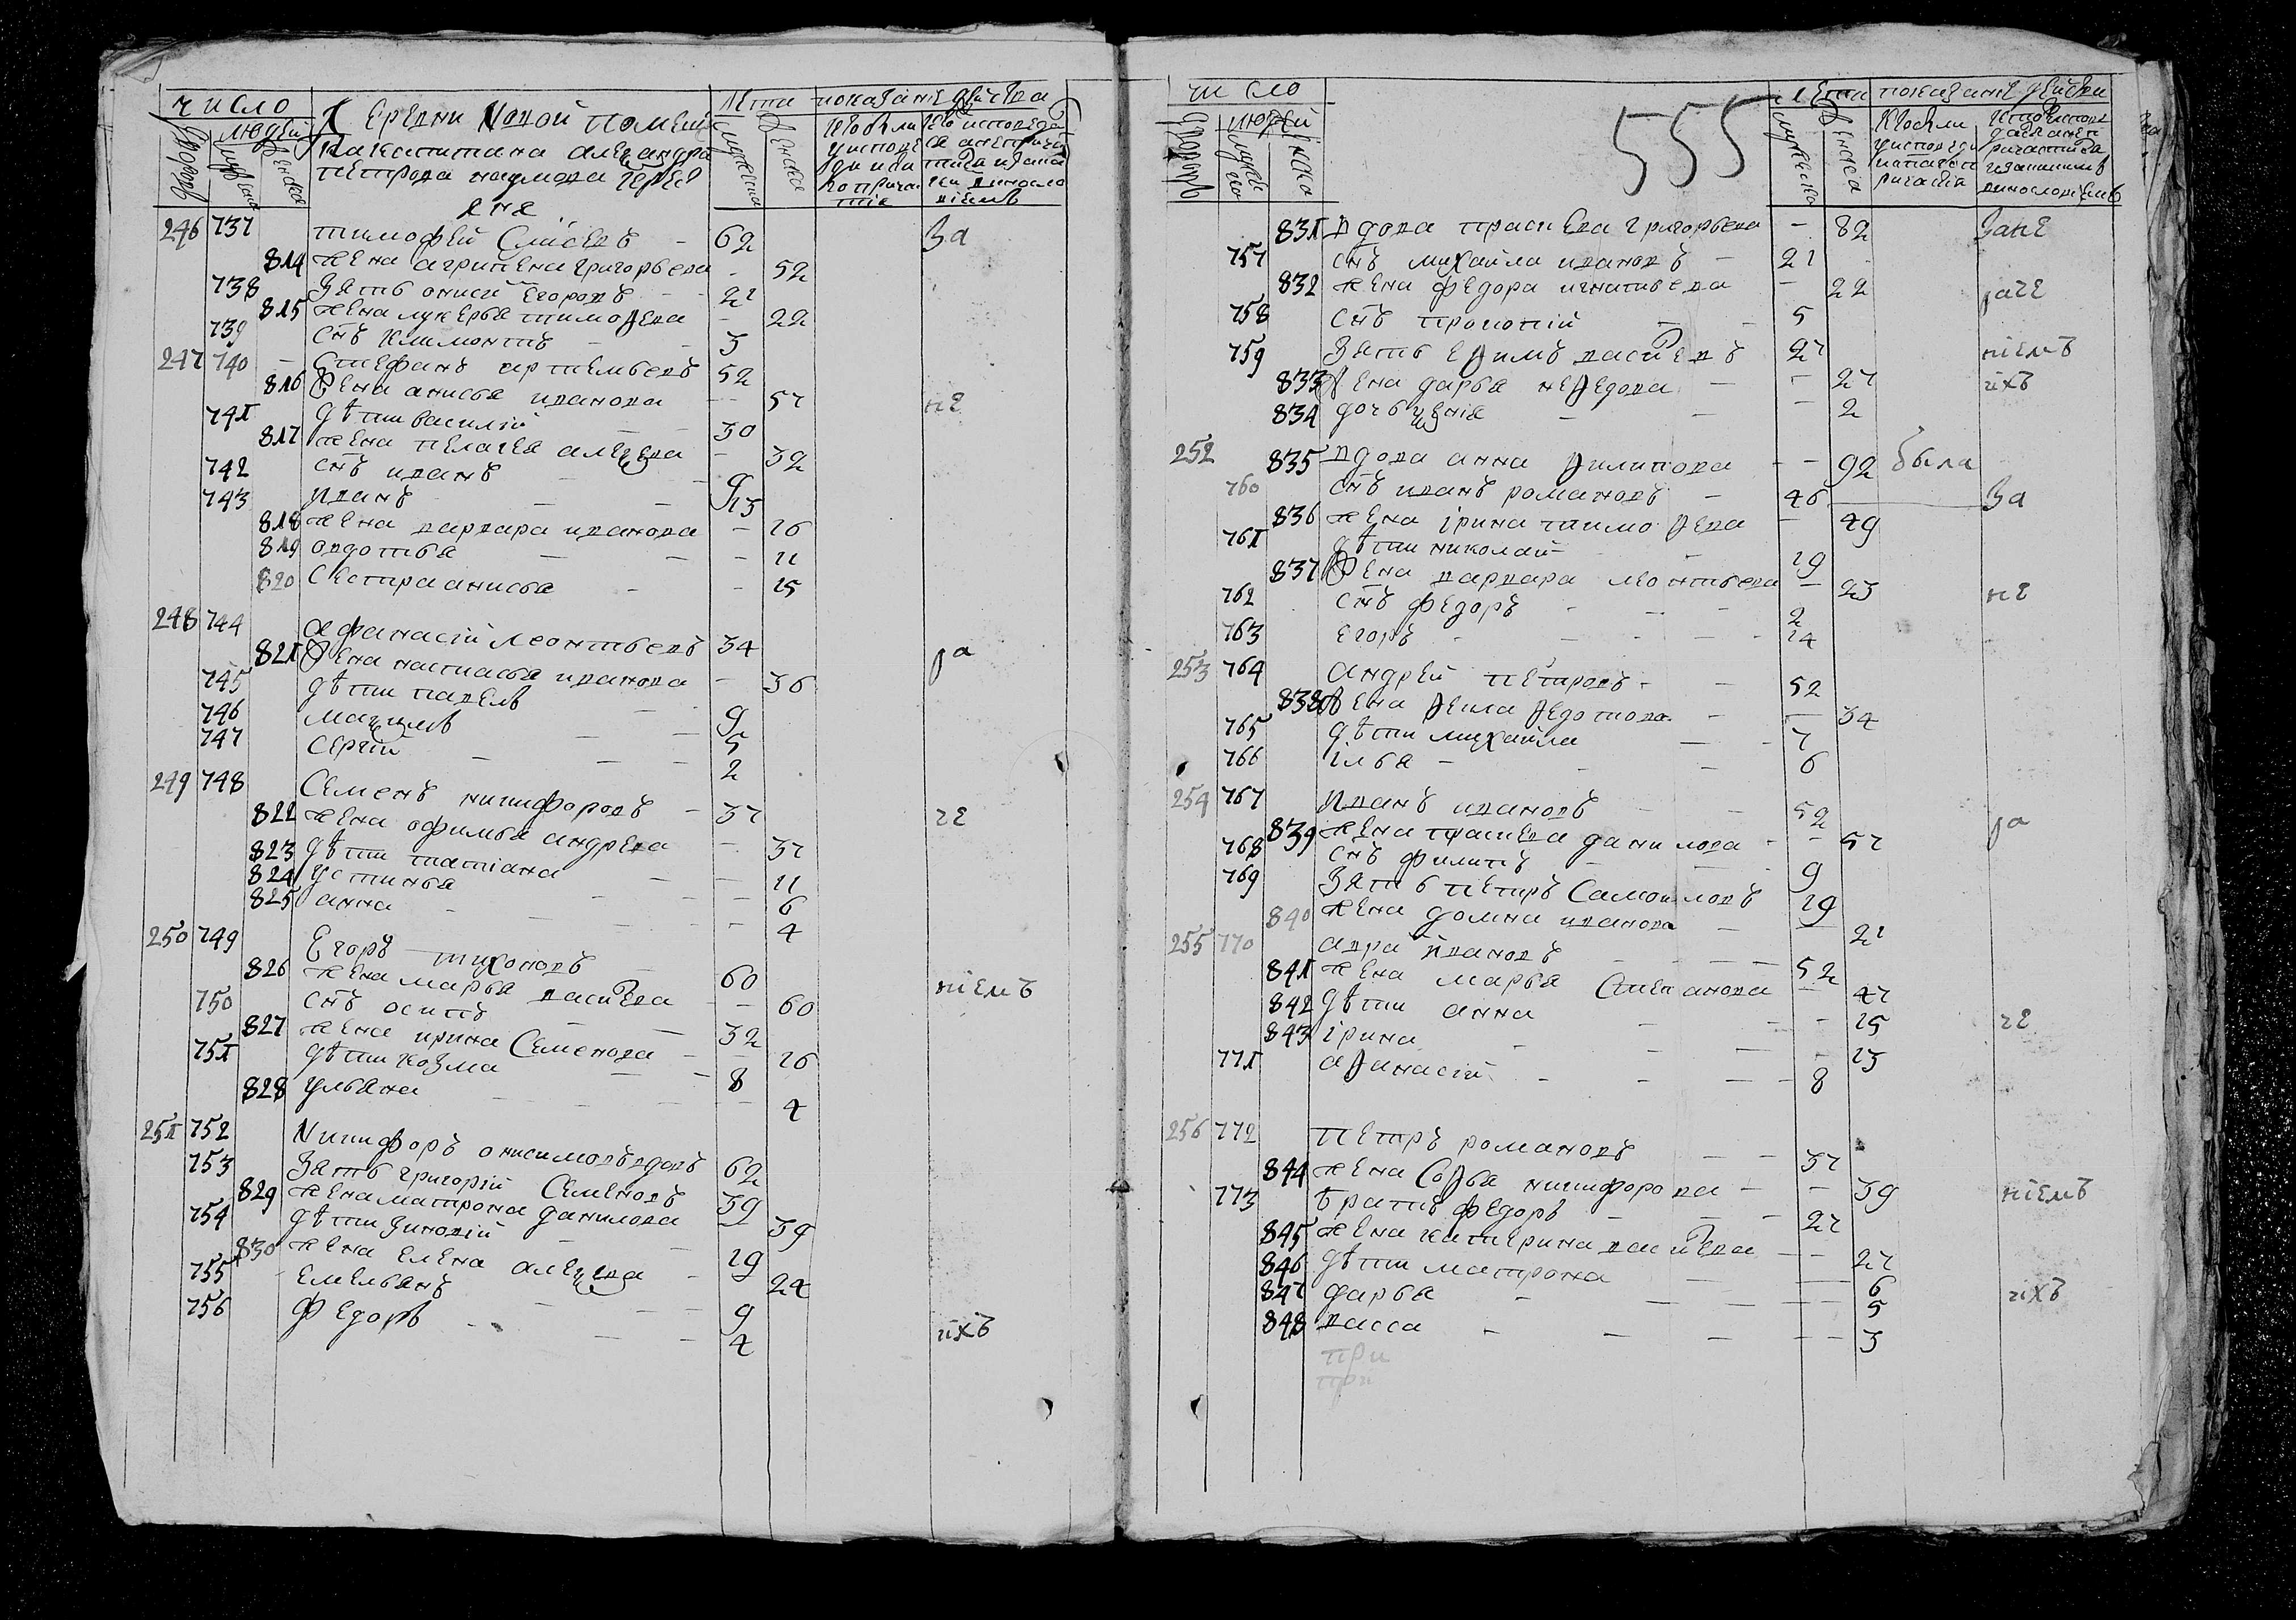 число
лета показание действа
людей
Деревни Новой помещи
ка капитана александра
петрова наумова крестья
яне
246 737 тимофей Елисеевъ - 62 За
814 жена агрипена григорьева - 52
738 Зять онисим Егоровъ - 21
815 жена лукерья тимофеева - 22
739 снъ климонтъ - 3
247 740 - Стефанъ артемьевъ 52
816 жена анисья иванова - 57 не
741 дѣти василий - 30
817 жена пелагея алексеева - 32
742 снъ иванъ - 9
743 иванъ - 15
818 жена варвара иванова - 16
819 авдотья - 11
820 Сестра анисья - 15
248 744 афанасий леонтьевъ 34
821 жена настасья иванова - 36 за
745 дѣти павелъ - 9
746 максимъ - 5
747 Сергий - 2
249 748 Семенъ никифоровъ - 37
822 жена офимья андреева - 37 че
823 дѣти татиана - 11
824 устинья - 6
825 анна - 4
250 749 Егоръ тихоновъ - 60
826 жена марья васильева - 60 ниемъ
750 снъ осипъ - 32
827 жена ирина Семенова - 26
751 дѣти козма - 8
828 ульяна - 4
251 752 Никифоръ онисимовъ вдовъ 62
753 Зять григорий Семеновъ 39
829 жена матрона данилова - 39
754 дѣти Зиновий - 19
830 жена елена алексеева - 24
755 емельянъ - 9
756 Федоръ - 4 ихъ
число
555
лета показание действа
людей
831 вдова прасковья григорьева - 82 Запе
757 снъ михайла ивановъ - 21
832 жена федора игнатьева - 22 заче
758 снъ прокопий - 5
759 Зять ефимъ васильевъ 27 ниемъ
833 жена дарья нефедова - 27 ихъ
834 дочь ксения - 2
252 835 вдова анна филипова - 92 была
760 снъ иванъ романовъ - 46 За
836 жена ирина тимофеева - 49
761 дѣти николай - 19
837 жена варвара леонтьева - 23 не
762 снъ федоръ - 2
763 егоръ - 14
253 764 андрей петровъ - 52
838 жена фекла федотова - 34
765 дѣти михайла - 7
766 илья - 6
254 767 иванъ ивановъ - 52
839 жена прасковья данилова - 57 за
768 снъ филипъ - 9
769 Зять петръ Самойловъ 19
840 жена домна иванова - 21
255 770 аврам ивановъ - 52
841 жена марья Степанова - 47
842 дѣти анна - 15 че
843 ирина - 13
771 афанасий - 8
256 772 петръ романовъ - 37
844 жена Софья никифорова - 39 ниемъ
773 братъ федоръ - 27
845 жена катерина васильева - 27
846 дѣти матрона - 6
847 дарья - 5 ихъ
848 васса - 3
при
при